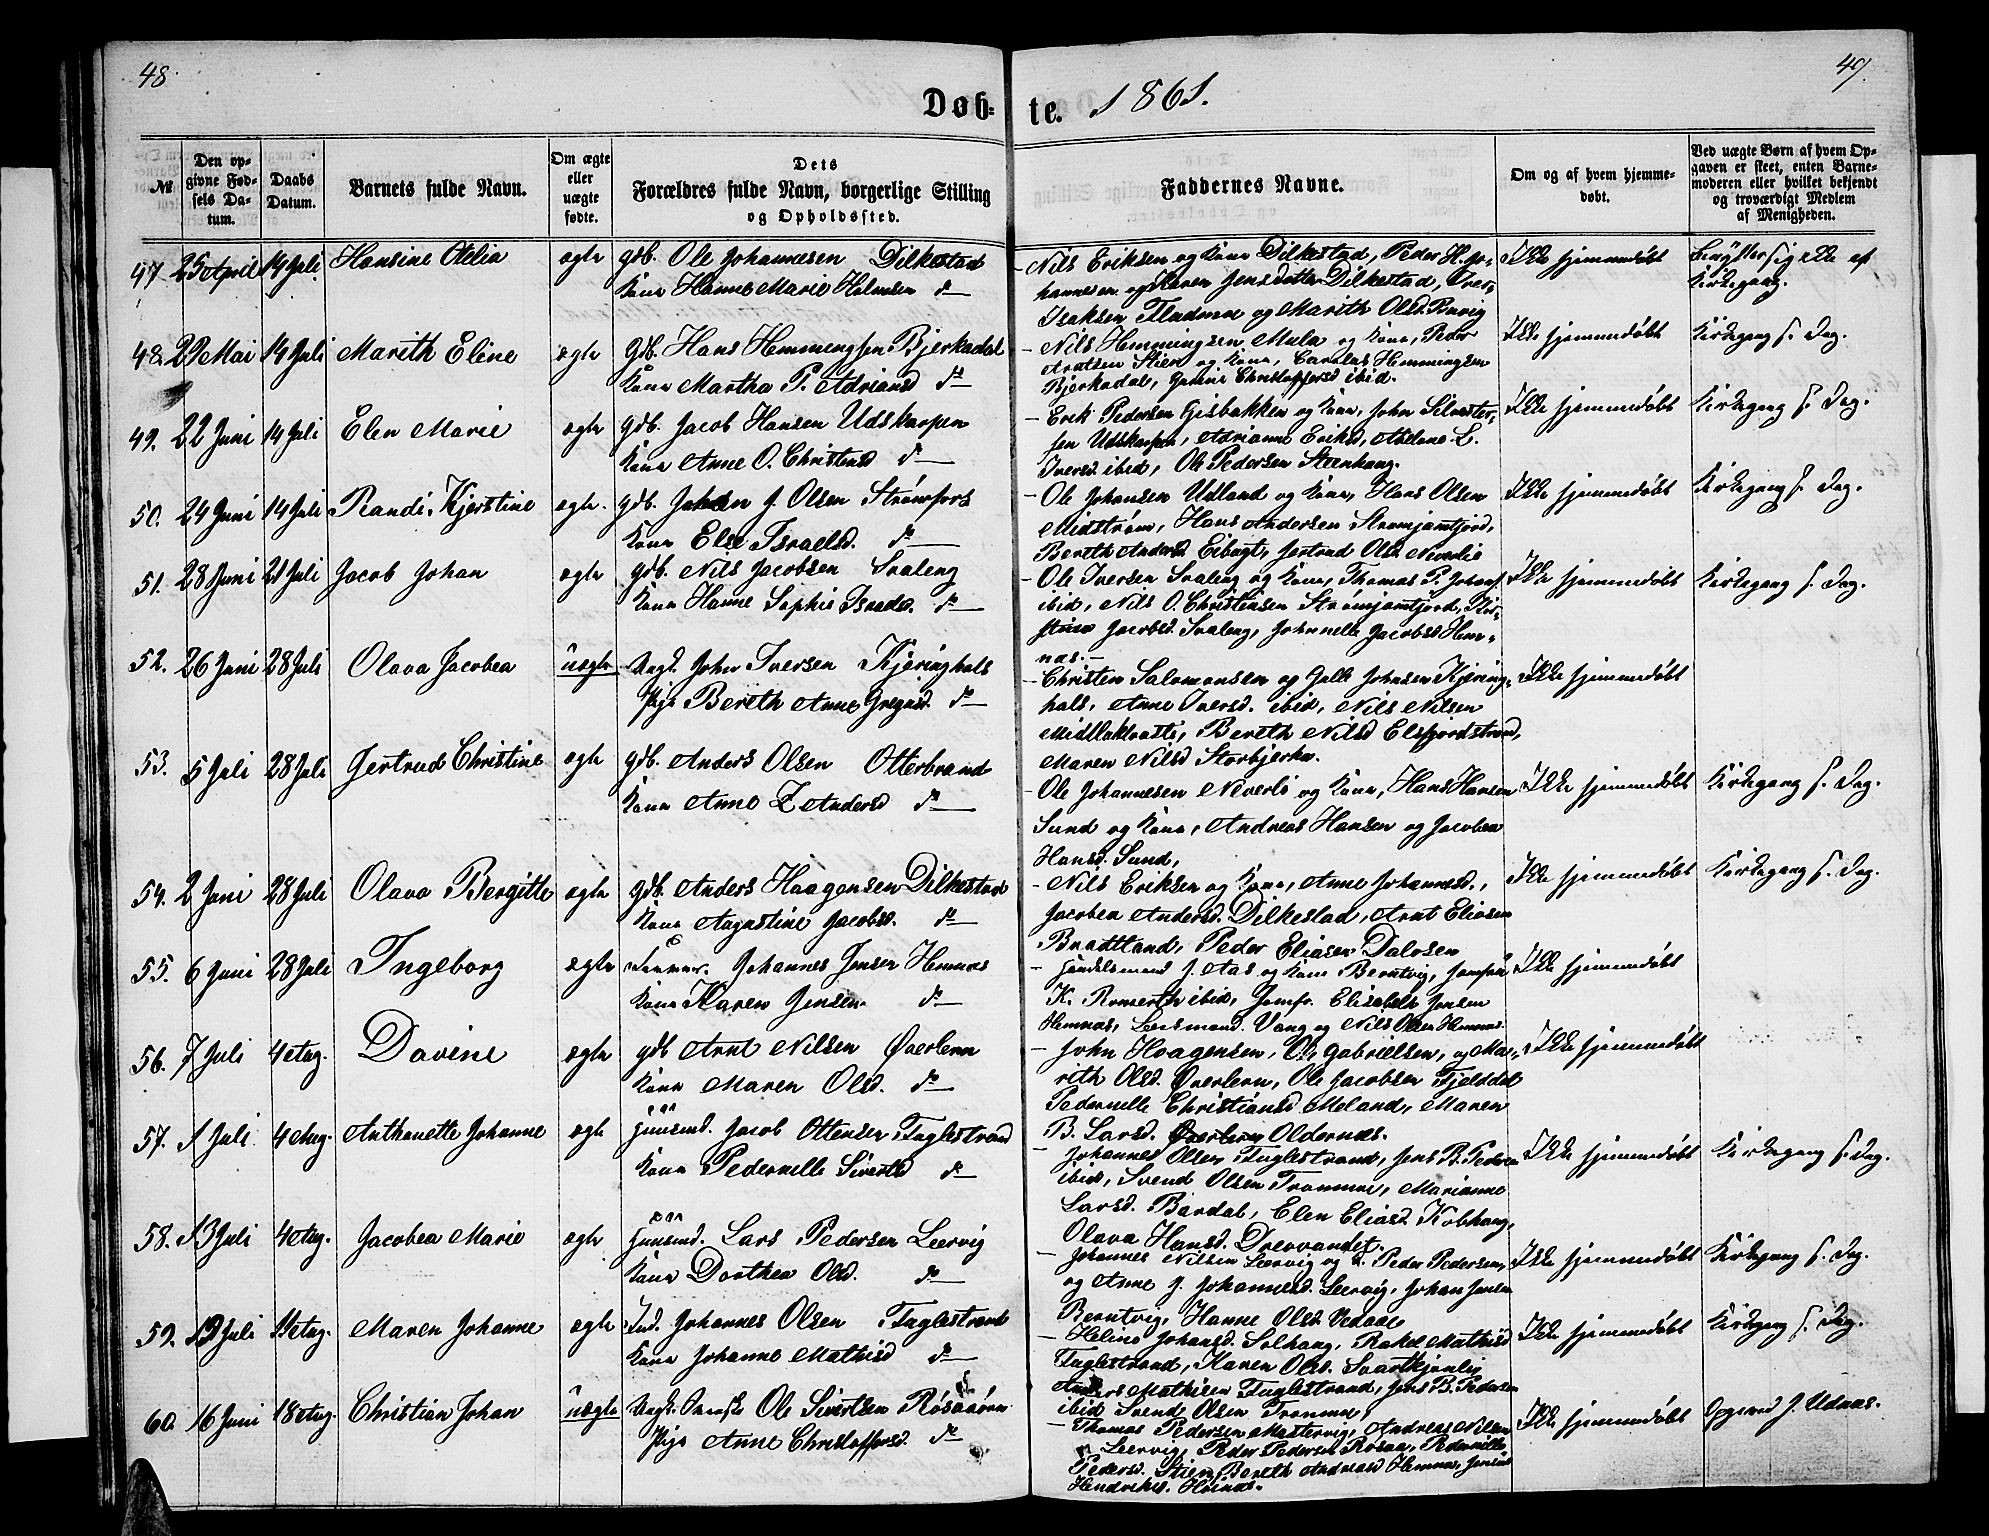 48.
49.
Døb-
te. 1861.
№
Den op-
givne Fød-
sels Da-
tum.
Daabs
Datum.
Barnets fulde Navn.
Om ægte
eller
uægte
fødte.
Dets
Forældres fulde Navn, borgerlige Stilling
og Opholdssted.
Faddernes Navne.
Om og af hvem hjemme-
døbt.
Ved uægte Børn af hvem Op-
gaven er skeet, enten Barne-
moderen eller hvilket bekjendt
og troværdigt Medlem
af Menigheden.
47. 25 April 14 Juli Hansine Otelia ægte gdb. Ole Johannesen Dilkestad
Kone Hanne Marie Holmsen do
Nils Eriksen og Kone Dilkestad, Peder H. Jo-
hannesen og Karen Jensdatter Dilkestad, Iver
Isaksen Fladmoe og Marith Olsd.
Ikke hjemmedøbt
Kirkegang.
48. 29 Mai 14 Juli Marith Eline ægte gdb. Hans Hemmingsen Bjerkadal
Kone Martha P. Adriansd do
Nils Hemmingsen Mula og Kone, Peder
Arntsen Stien og Kone, Hemmingsen
Bjerkadal, Christoffersd ibid.
Ikke hjemmedøbt Kirkegang s. Dag.
49. 22 Juni 14 Juli Elen Marie ægte gdb. Jacob Hansen Udskarpen
Kone Anne O. Christensd do
Erik Pedersen Gisbakken og Kone, John Silvester-
sen Udskarpen, Adrianne Eriksd, L.
Iversd ibid, Ole Pedersen Steenhaug.
Ikke hjemmedøbt Kirkegang s. Dag.
50. 24 Juni 14 Juli Randi Kjerstine ægte. gdb. Johan J. Olsen Strømfors
Kone Else Israelsd. do
Ole Johansen Udland og Kone, Hans Olsen
Midstrøm, Hans Andersen Strømjamtjord,
Bereth Andersd Eibugt, Jertrud Olsd Neverlie
Ikke hjemmedøbt Kirkegang s. Dag.
51. 28 Juni 21 Juli Jacob Johan ægte gdb. Nils Jacobsen Svaleng
Kone Hanne Sophie Israelsd. do
Ole Iversen Svaleng og Kone, Thomas P. Johans.
ibid, Nils O. Christensen Strømjamtjord, Kir-
stine Jacobsd. Svaleng, Johnnelle Jacobsd Hem-
nas.
Ikke hjemmedøbt Kirkegang s. Dag.
52. 26 Juni 28 Juli Olava Jacobea uægte Ungk. John Iversen Kjeringhals
Pige Bereth Anne Gregusd. do
Christen Salomonsen og Johnsen Kjering-
hals, Anne Iversd. ibid, Nils Nilsen
Midtlaktvatt, Bereth Nilsd Elsfjordstrand,
Maren Nilsd Storbjerka.
Ikke hjemmedøbt
53. 5 Juli 28 Juli Gertrud Christine ægte gdb. Anders Olsen Otterbrand
Kone Anne Z. Andersd do
Ole Johannesen Neverli og Kone, Hans Hansen
Sund og Kone, Andreas Hansen og Jacobea
Hansd. Sund,
Ikke hjemmedøbt Kirkegang s. Dag.
54. 2 Juni 28 Juli Olava Bergitte ægte gdb. Anders Haagensen Dilkestad
Kone Augustine Jacobsd. do
Nils Eriksen og Kone, Anne Johannesd.,
Jacobea Andersd. Dilkestad, Arnt Eliasen
Bradtland, Peder Eliasen Dalosen
Ikke hjemmedøbt Kirkegang s. Dag.
55. 6 Juni 28 Juli Ingeborg ægte Johannes Jensen Hemnæs
Kone Karen Jensen do
Handelsmand J. Aas og Kone Berntvig, Jomfru
K. ibid, Jomfr. Elisabeth Jensen
Hemnæs, Leensmand. Vang og Nils Olsen Hemnæs.
Ikke hjemmedøbt
56. 7 Juli 4 Aug. Davine ægte gdb Arnt Nilsen Øverleern
Kone Maren Olsd. do
John Haagensen, Ole Gabrielsen, og Ma-
rith Olsd. Øverleern, Ole Jacobsen Fjelddal
Pedernelle Christiansd Meland, Maren
B. Larsd. Øverleern Oldernæs.
Ikke hjemmedøbt
57. 1 Juli 4 Aug. Anthonette Johanne ægte Huusmd. Jacob Ottensen Fuglestrand
Kone Pedernelle Sivertsd do
Johannes Olsen Fuglestrand, Jens B. Pedersen
ibid, Svend Olsen Trommoe, Marianne
Larsd. Bardal, Elen Eliasd Kobhaug,
Olava Hansd. Drevvandet.
Ikke hjemmedøbt Kirkegang s. Dag.
58. 13 Juli 4 Aug. Jacobea Marie ægte Huusmd. Lars Pedersen Leervig
Kone Dorthea Olsd. do
Johannes Nilsen Leervig og K. Peder Pedersen,
og Anne J. Johannesd. Leervig, Johan Jensen
Berntvig, Hanne Olsd Vedaae
Ikke hjemmedøbt Kirkegang s. Dag.
59. 19 Juli 11 Aug. Maren Johanne ægte Ind. Johannes Olsen Fuglestrand
Kone Johanne Mathisd do
Heline Johansd. Solhaug, Rakel Mathisd
Fuglestrand, Karen Olsd. Svartkjønlig
Anders Mathisen Fuglestrand, Jens B. Pedersen
ibid Svend Olsen Trommoe,
Ikke hjemmedøbt Kirkegang s. Dag.
60. 16 Juni 18 Aug. Christian Johan uægte Ungk. Ole Sivertsen Røsaaøren
Pige Anne Christoffersd. do
Thomas Pedersen Mastervig, Andreas Nilsen
Leervig, Peder Pedersen Røsaa, Pedernille
Pedersd. Stien, Bereth Andreasd Hemnæs,
Hendriksd. Hvinæs.
Ikke hjemmedøbt Opgivet J. Udnæs.